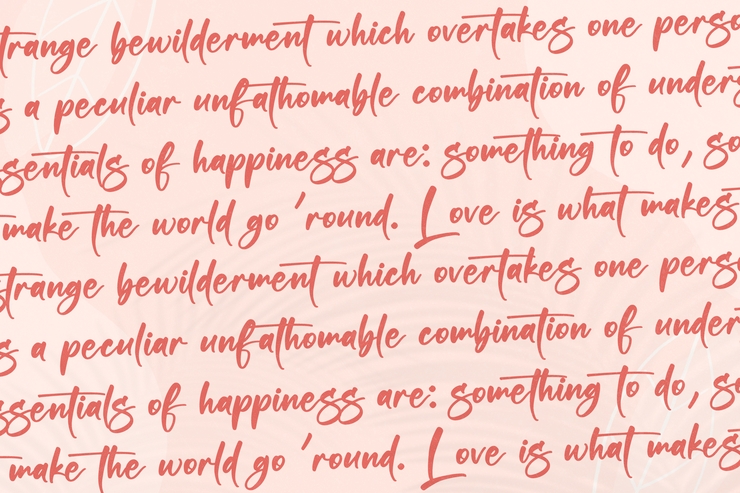 trange bewilderment which overtakes one perso
s a peculiar unfathomable combination of unders
ssentials of happiness are: something to do, so
make the world go 'round. Love is what makes
strange bewilderment which overtakes one perso
s a peculiar unfathomable combination of under
ssentials of happiness are: something to do, so
make the world go 'round. Love is what makes